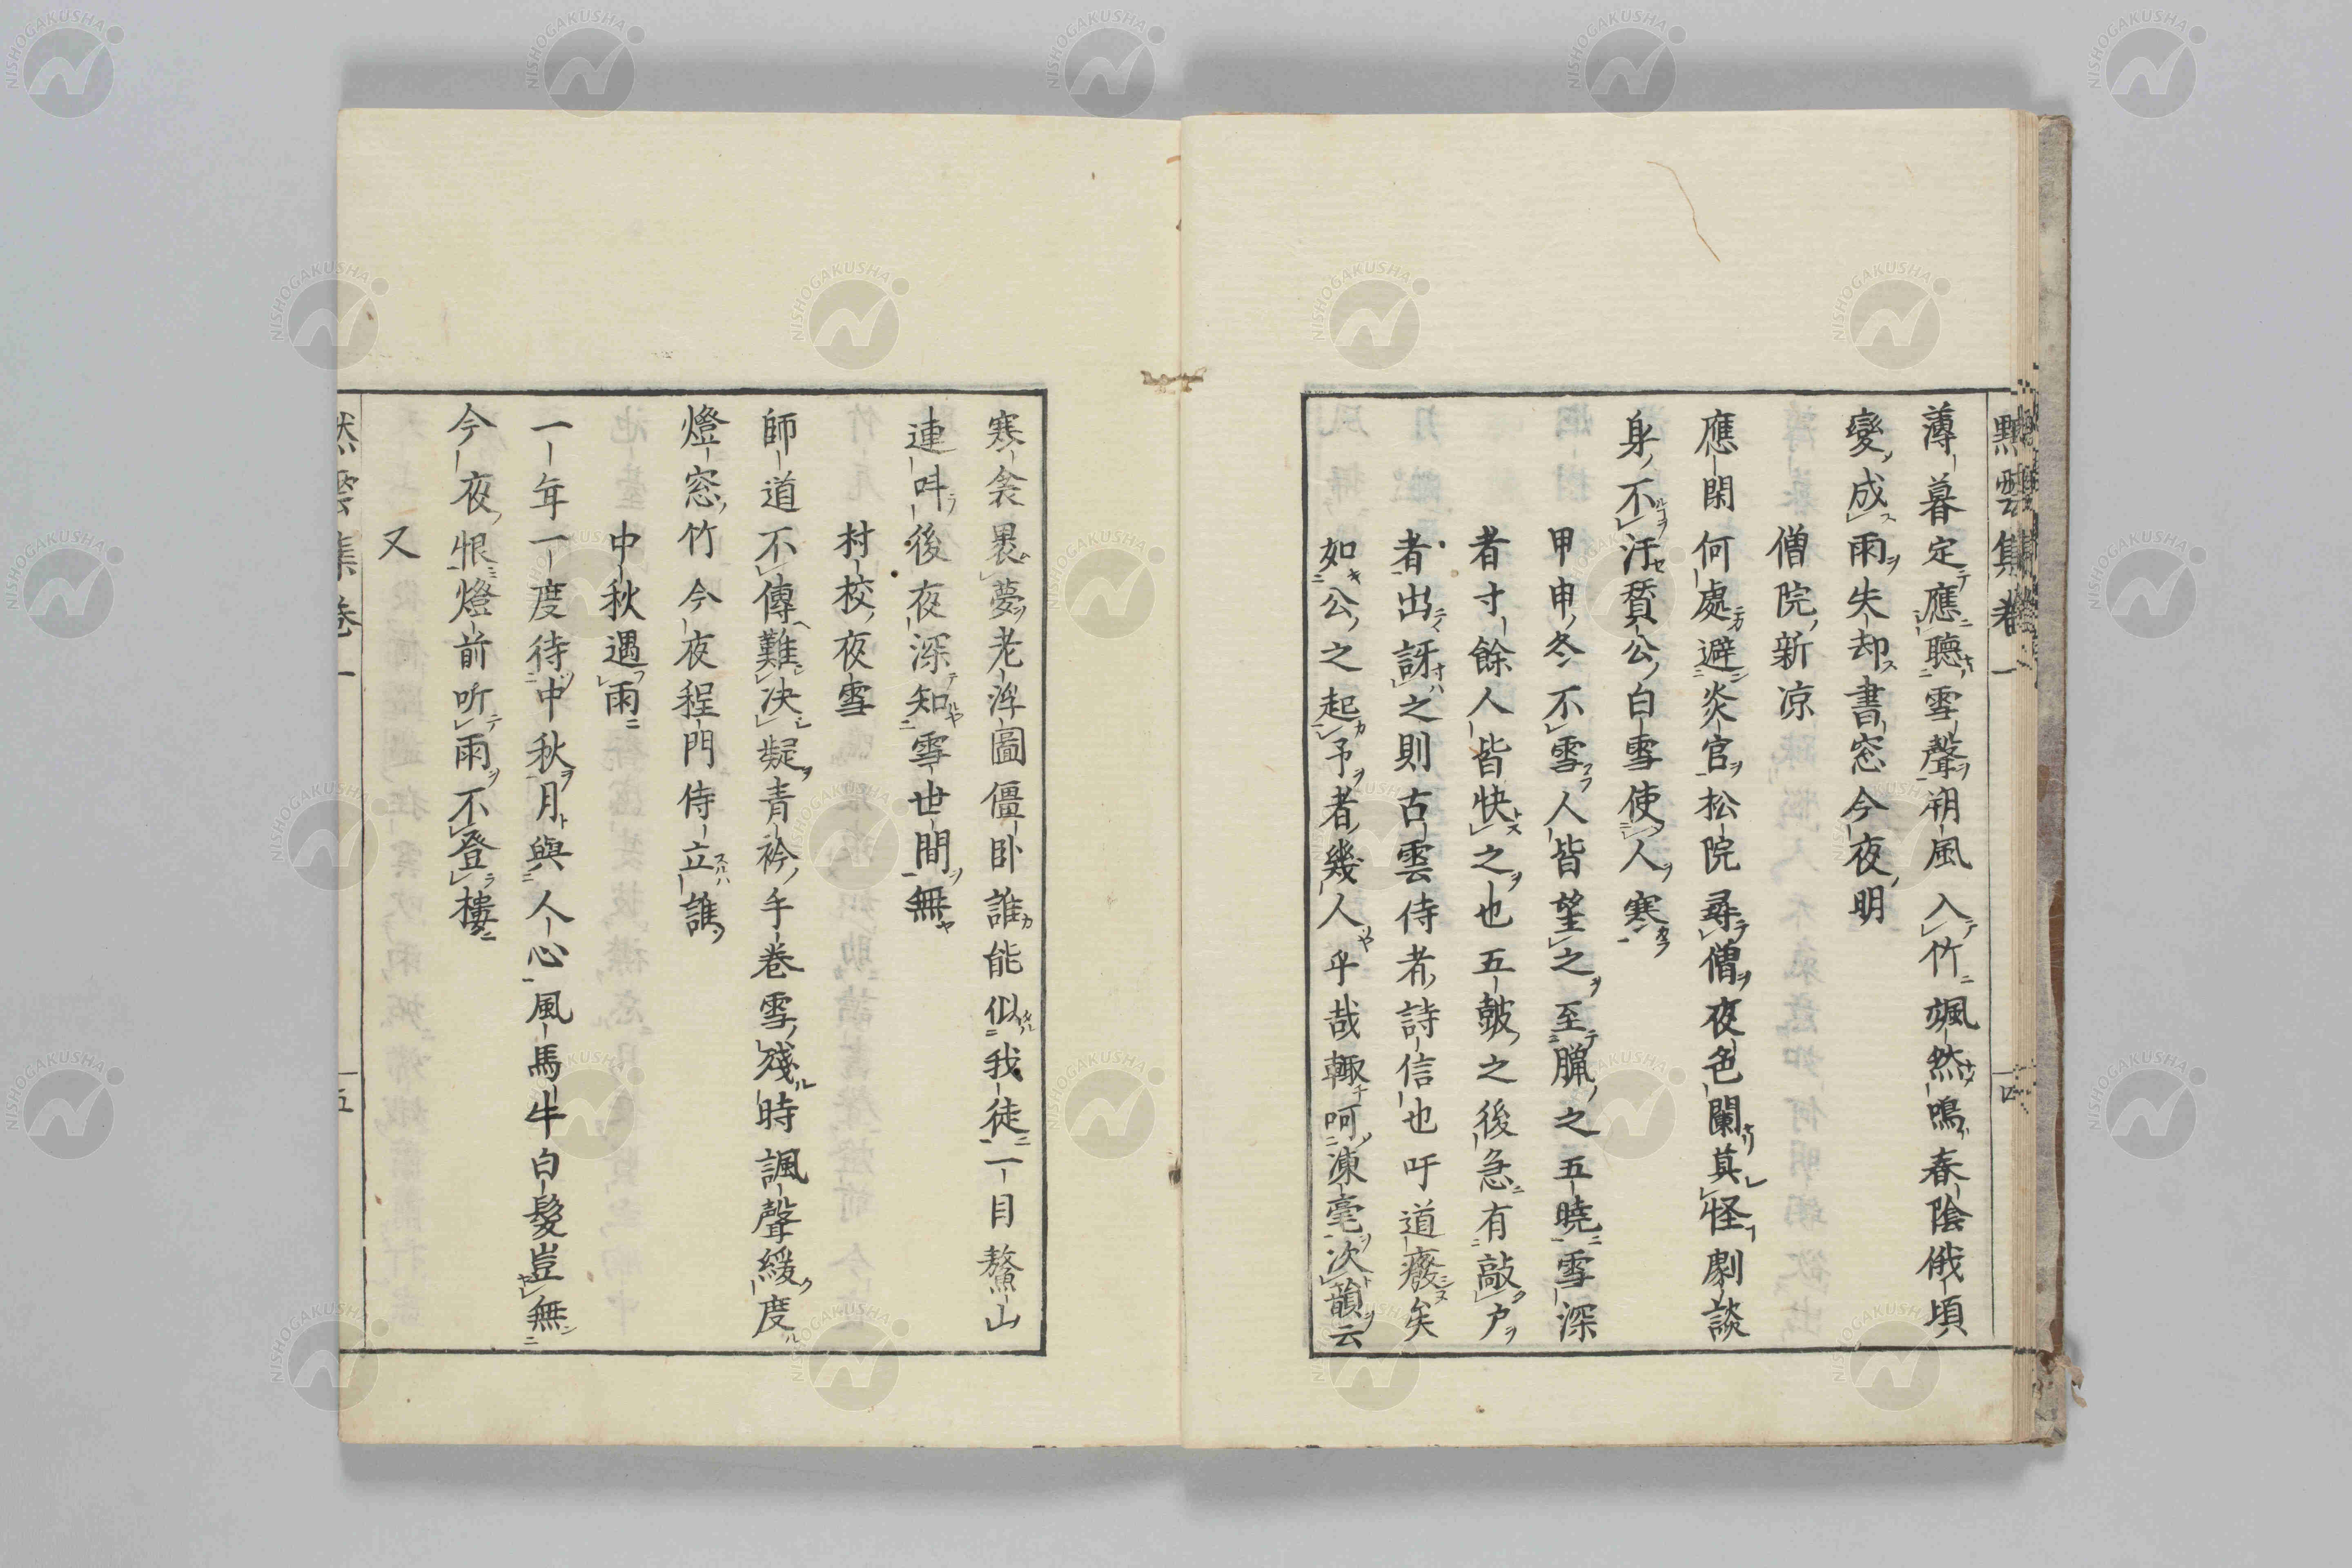 黙雲集卷一
四
薄暮定應聽雪聲朔風入竹颯然鳴春陰俄頃
變成雨失却書窓今夜明
僧院新凉
應閑何處避炎官松院尋僧夜色闌莫怪劇談
身不汙贅公白雪使人寒
甲申冬不雪人皆望之至臘之五曉雪深
者寸餘人皆快之也五皷之後急有敲户
者出訝之則古雲侍者詩信也吁道癈矣
如公之起予者幾人乎哉輙呵凍毫次韻云
寒衾裹夢老浑圖僵卧誰能似我徒一目鰲山
連呌後夜深知雪世間無
村校夜雪
師道不傳難决疑青衿手卷雪殘時諷聲緩度
燈窓竹今夜程門侍立誰
中秋遇雨
一年一度待中秋月與人心風馬牛白髮豈無
今夜恨燈前听雨不登樓
又
黙雲集卷一
五
NISHOGAKUSHA